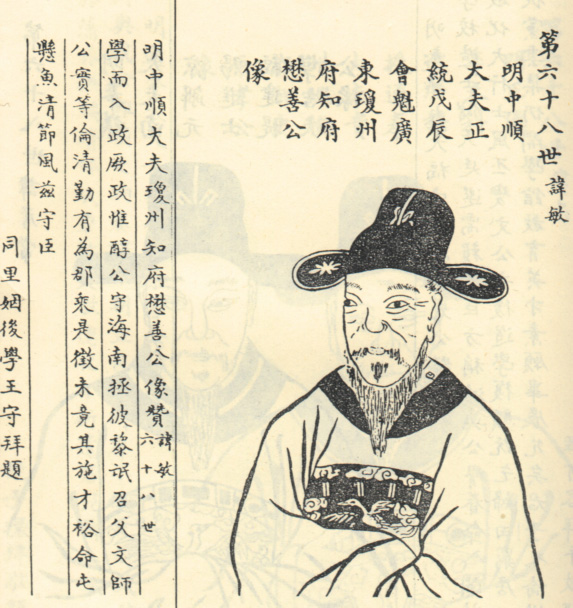 第六十八世 諱敏
明中順
大夫正
統戊辰
會魁廣
東瓊州
府知府
懋善公
像
明中順大夫瓊州知府懋善公像贊 諱敏 六十八世
學而入政厥政惟醇公守海南拯彼黎氓召父文師
公實等倫清勤有為郡衆是徵未竟其施才裕命屯
懸魚清節風茲守臣
同里姻後學王守拜題